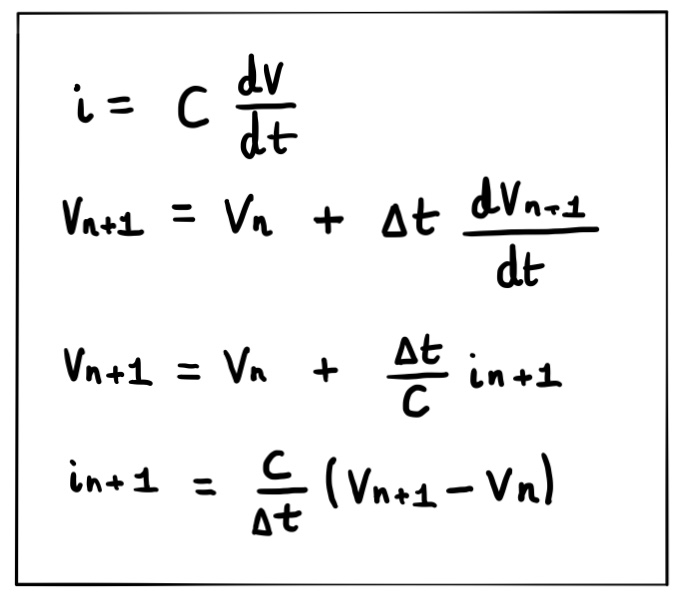 i = C dV/dt
Vn+1 = Vn + Δt dVn+1/dt
Vn+1 = Vn + Δt/C in+1
in+1 = C/Δt (Vn+1 − Vn)